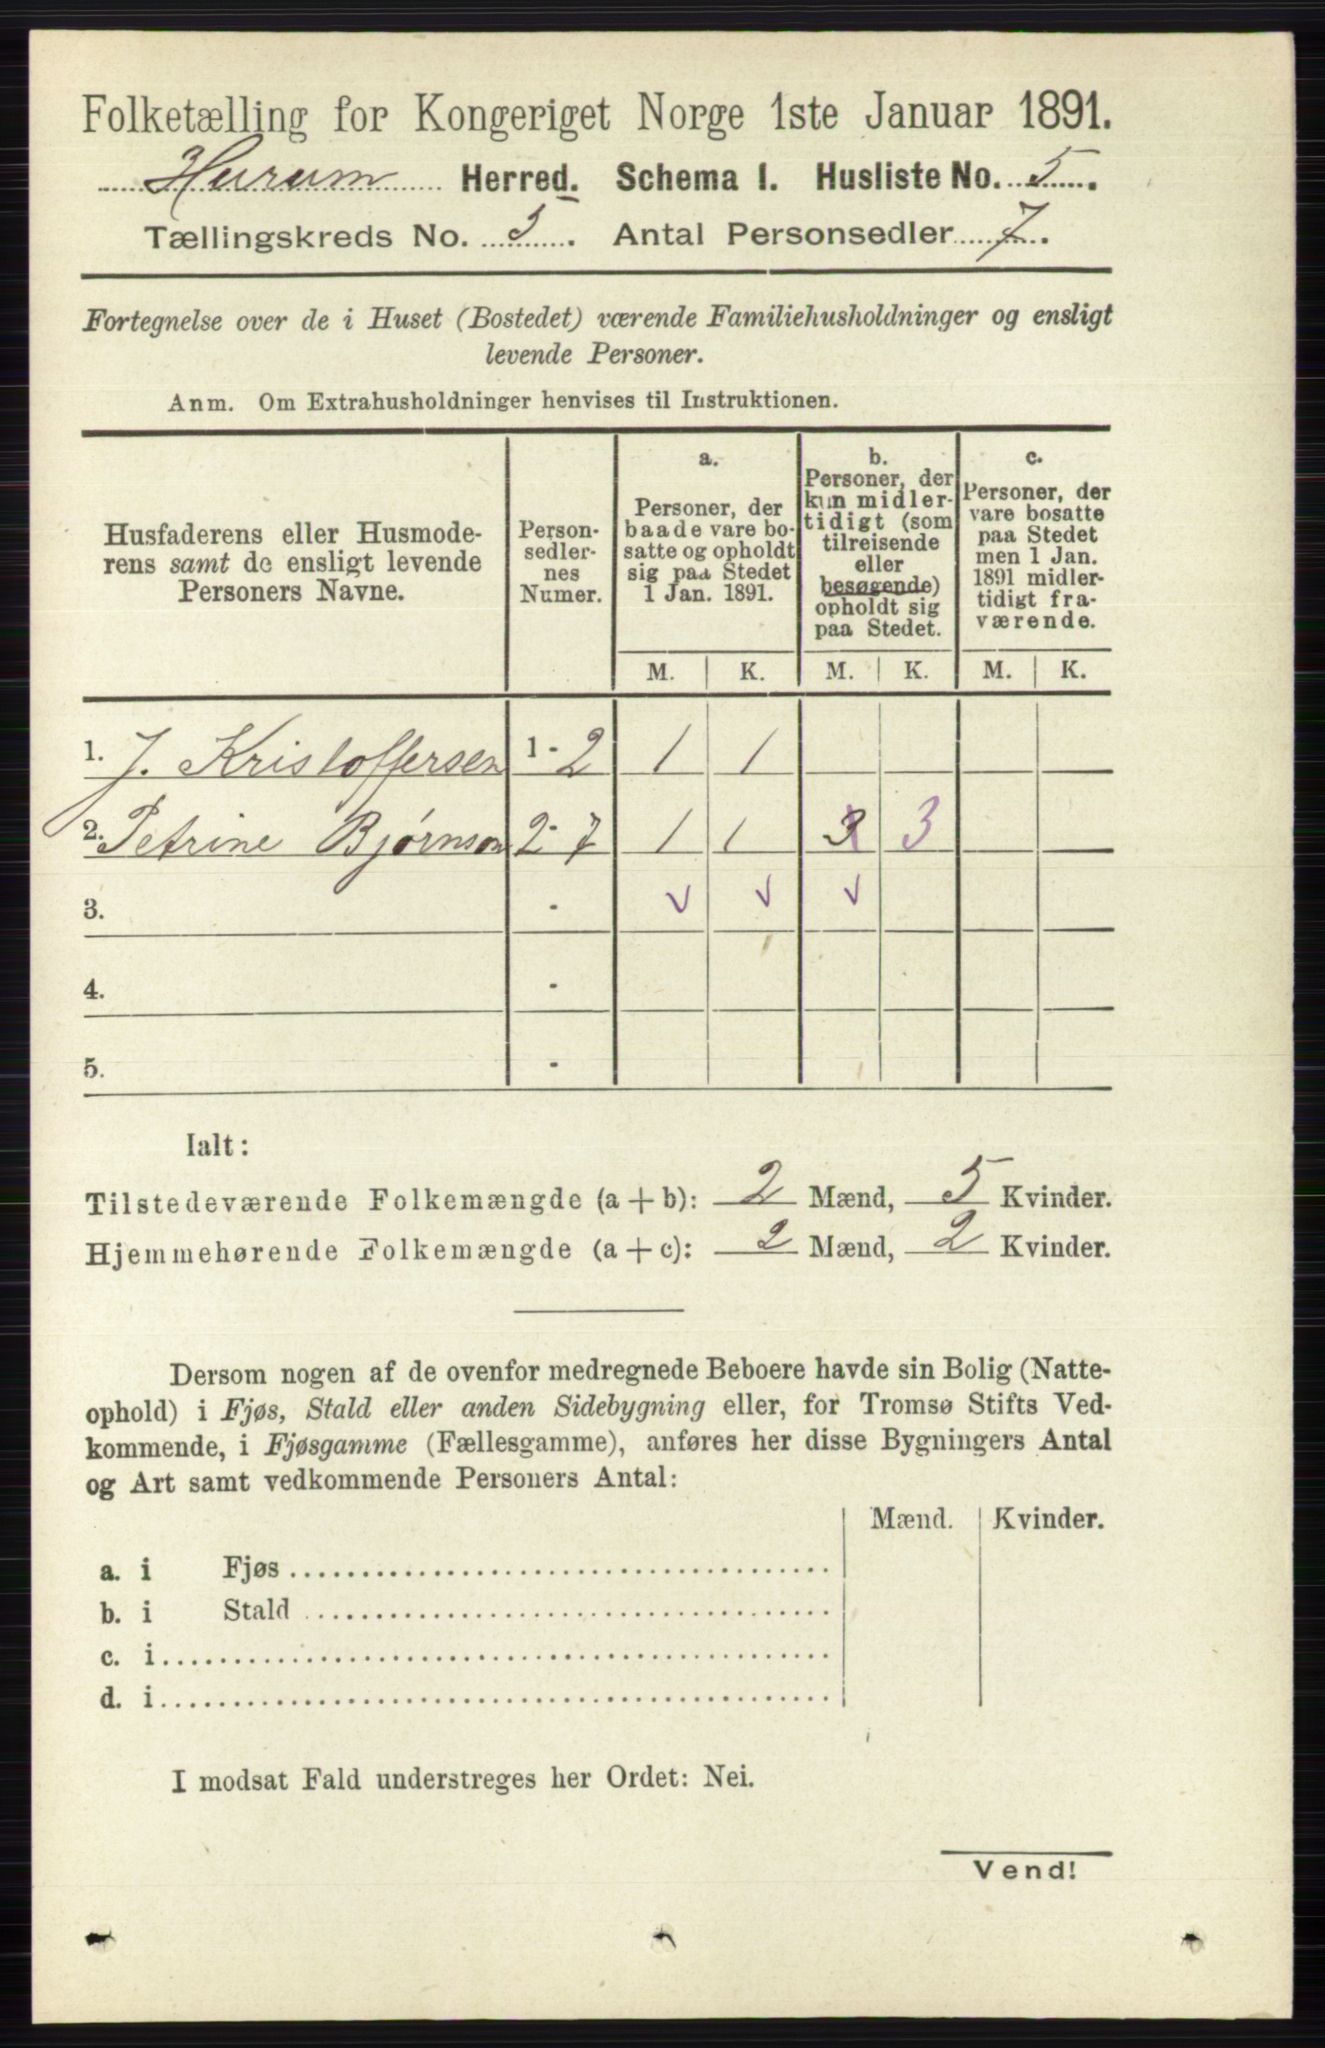 Folketælling for Kongeriget Norge 1ste Januar 1891.
Hurum Herred. Schema I. Husliste No. 5.
Tællingskreds No. 5. Antal Personsedler 7.
Fortegnelse over de i Huset (Bostedet) værende Familiehusholdninger og ensligt
levende Personer.
Anm. Om Extrahusholdninger henvises til Instruktionen.
Husfaderens eller Husmode-
rens samt de ensligt levende
Personers Navne.
Person-
sedler-
nes
Numer.
a.
Personer, der
baade vare bo-
satte og opholdt
sig paa Stedet
1 Jan. 1891.
b.
Personer, der
kun midler-
tidigt (som
tilreisende
eller
besøgende)
opholdt sig
paa Stedet.
c.
Personer, der
vare bosatte
paa Stedet
men 1 Jan.
1891 midler-
tidigt fra-
værende.
M. K. M. K. M. K.
1. J. Kristoffersen 1 - 2 1 1
2. Petrine Bjørnson 2 - 7 1 1 3 3
3. - v v v
4. -
5. -
Ialt:
Tilstedeværende Folkemængde (a + b): 2 Mænd, 5 Kvinder.
Hjemmehørende Folkemængde (a + c): 2 Mænd, 2 Kvinder.
Dersom nogen af de ovenfor medregnede Beboere havde sin Bolig (Natte-
ophold) i Fjøs, Stald eller anden Sidebygning eller, for Tromsø Stifts Ved-
kommende, i Fjøsgamme (Fællesgamme), anføres her disse Bygningers Antal
og Art samt vedkommende Personers Antal:
Mænd. Kvinder.
a. i Fjøs
b. i Stald
c. i
d. i
I modsat Fald understreges her Ordet: Nei.
Vend!